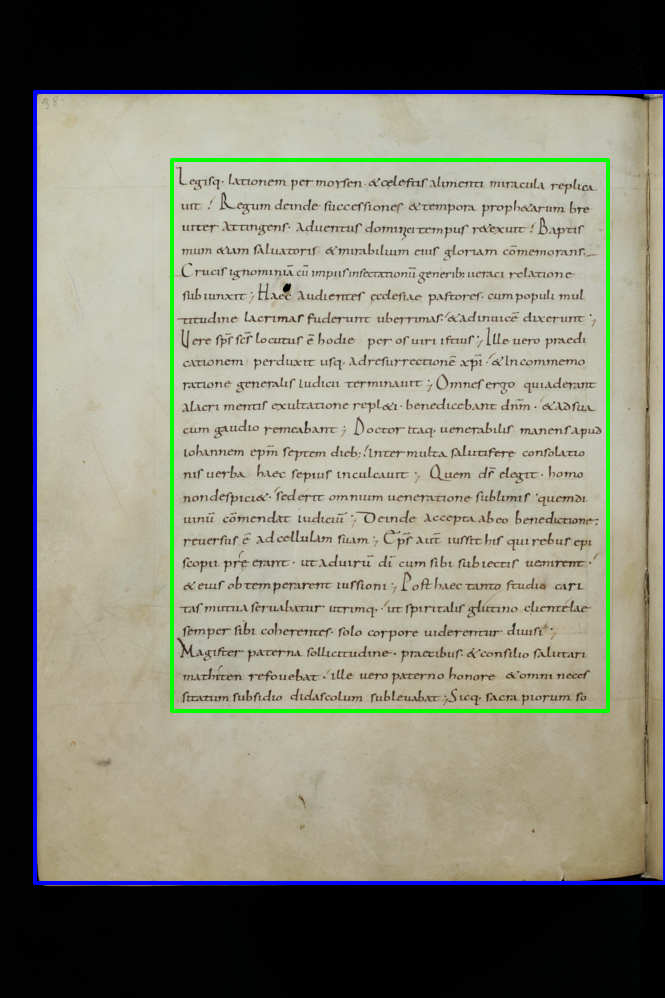 38.
Legisq· lationem per moysen· & celestis alimenti miracula replica
uit ; Regum deinde successiones & tempora prophetarum bre
uiter attingens· aduentus dominici tempus retexuit ; Baptis
mum etiam saluatoris· & mirabilium eius gloriam cōmemorans·
Crucis ignominiā cū impiis insectationū generib; ueraci relatione
subiunxit ; Haec audientes ecclesiae pastores· cum populi mul
titudine lacrimas fuderunt uberrimas· & adinuicē dixerunt ;
Uere sps scs locutus ē hodie per os uiri istius ; Ille uero praedi
cationem perduxit usq· ad resurrectionē xpi· & in commemo
ratione generalis iudicii terminauit ; Omnes ergo qui aderant
alacri mentis exultatione repl&i· benedicebant dnm· & ad sua
cum gaudio remeabant ; Doctor itaq· uenerabilis manens apud
iohannem epm septem dieb; inter multa salutifere consolatio
nis uerba haec sepius inculcauit ; Quem ds elegit· homo
non despici&· sed erit omnium ueneratione sublimis quem di
uinū cōmendat iudiciū ; Deinde accepta ab eo benedictione;
reuersus ē ad cellulam suam ; Eps aut iussit his qui rebus epi
scopii pre erant· ut ad uirū di cum sibi subiectis uenirent·
& eius obtemperarent iussioni ; Post haec tanto studio cari
tas mutua seruabatur utrimq· ut spiritalis glutino clientelae
semper sibi coherentes· solo corpore uiderentur diuisi ;
Magister paterna sollicitudine· precibus· & consilio salutari
mathiten refouebat· ille uero paterno honore & omni neces
sitatum subsidio didascolum subleuabat ; Sicq· sacra piorum so